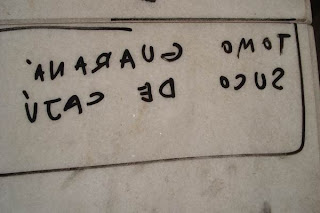 TOMO GUARANÁ
SUCO DE CAJÚ